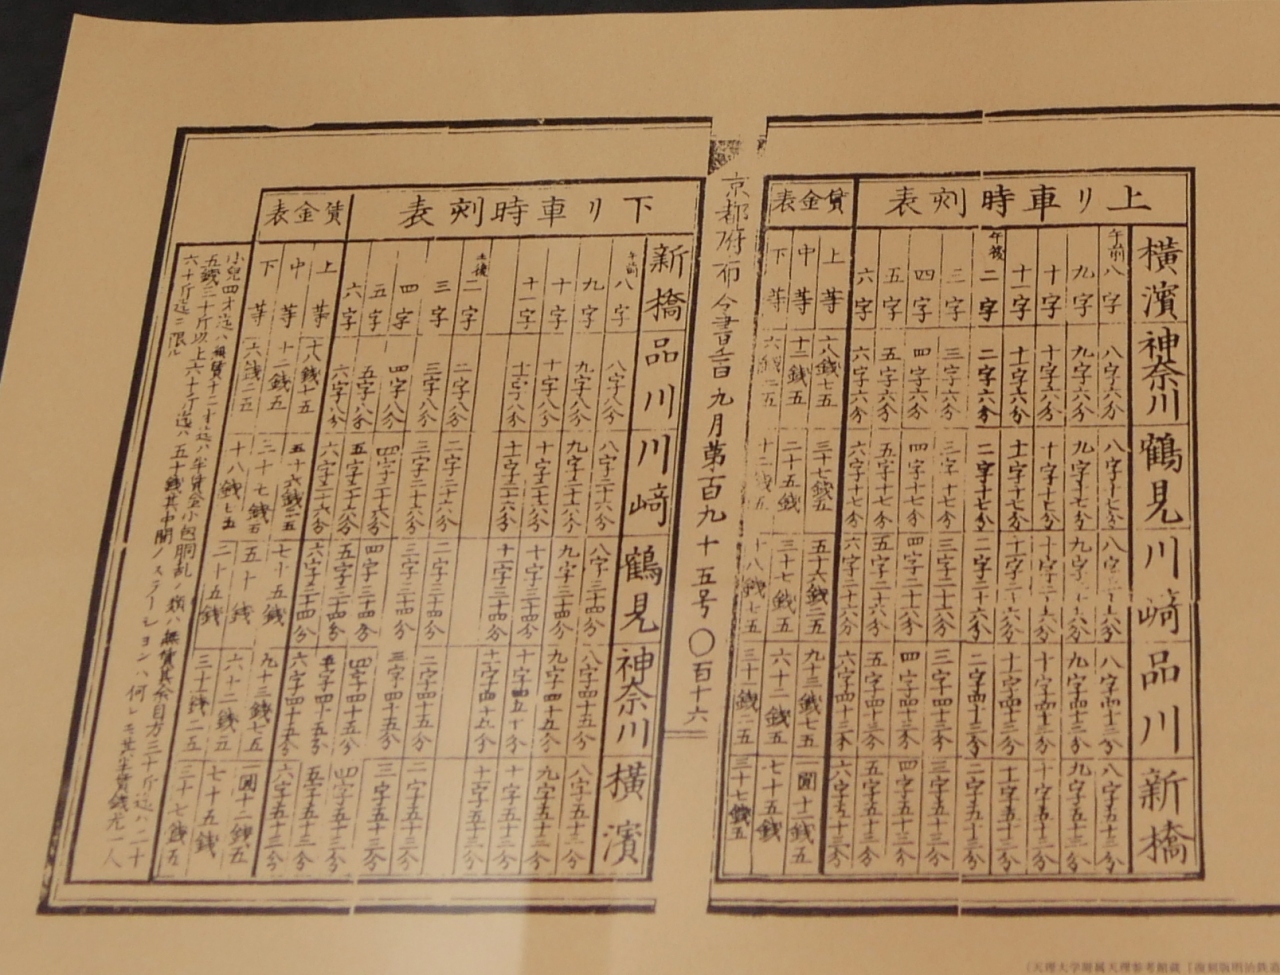 上リ車時刻表
横濱 神奈川 鶴見 川﨑 品川 新橋
午前八字 八字六分 八字十七分 八字二十六分 八字四十三分 八字五十三分
九字 九字六分 九字十七分 九字二十六分 九字四十三分 九字五十三分
十字 十字六分 十字十七分 十字二十六分 十字四十三分 十字五十三分
十一字 十一字六分 十一字十七分 十一字二十六分 十一字四十三分 十一字五十三分
午後二字 二字六分 二字十七分 二字二十六分 二字四十三分 二字五十三分
三字 三字六分 三字十七分 三字二十六分 三字四十三分 三字五十三分
四字 四字六分 四字十七分 四字二十六分 四字四十三分 四字五十三分
五字 五字六分 五字十七分 五字二十六分 五字四十三分 五字五十三分
六字 六字六分 六字十七分 六字二十六分 六字四十三分 六字五十三分
賃金表
上等 十八銭七五 三十七銭五 五十六銭二五 九十三銭七五 一圓十二銭五
中等 十二銭五 二十五銭 三十七銭五 六十二銭五 七十五銭
下等 六銭二五 十二銭五 十八銭七五 三十一銭二五 三十七銭五
京都府布令書 九月第百九十五号〇百十六
下リ車時刻表
新橋 品川 川﨑 鶴見 神奈川 横濱
午前八字 八字八分 八字二十六分 八字三十四分 八字四十五分 八字五十三分
九字 九字八分 九字二十六分 九字三十四分 九字四十五分 九字五十三分
十字 十字八分 十字二十六分 十字三十四分 十字四十五分 十字五十三分
十一字 十一字八分 十一字二十六分 十一字三十四分 十一字四十五分 十一字五十三分
午後二字 二字八分 二字二十六分 二字三十四分 二字四十五分 二字五十三分
三字 三字八分 三字二十六分 三字三十四分 三字四十五分 三字五十三分
四字 四字八分 四字二十六分 四字三十四分 四字四十五分 四字五十三分
五字 五字八分 五字二十六分 五字三十四分 五字四十五分 五字五十三分
六字 六字八分 六字二十六分 六字三十四分 六字四十五分 六字五十三分
賃金表
上等 十八銭七五 五十六銭二五 七十五銭 九十三銭七五 一圓十二銭五
中等 十二銭五 三十七銭五 五十銭 六十二銭五 七十五銭
下等 六銭二五 十八銭七五 二十五銭 三十一銭二五 三十七銭五
小兒四才迄ハ無賃十二才迄ハ半賃金小包胴乱ノ類ハ無賃其余目方三十斤迄ハ二十
五銭三十斤以上六十斤迄ハ五十銭其中間ノステーションハ何レモ其半賃銭尤一人
六十斤迄ニ限ル